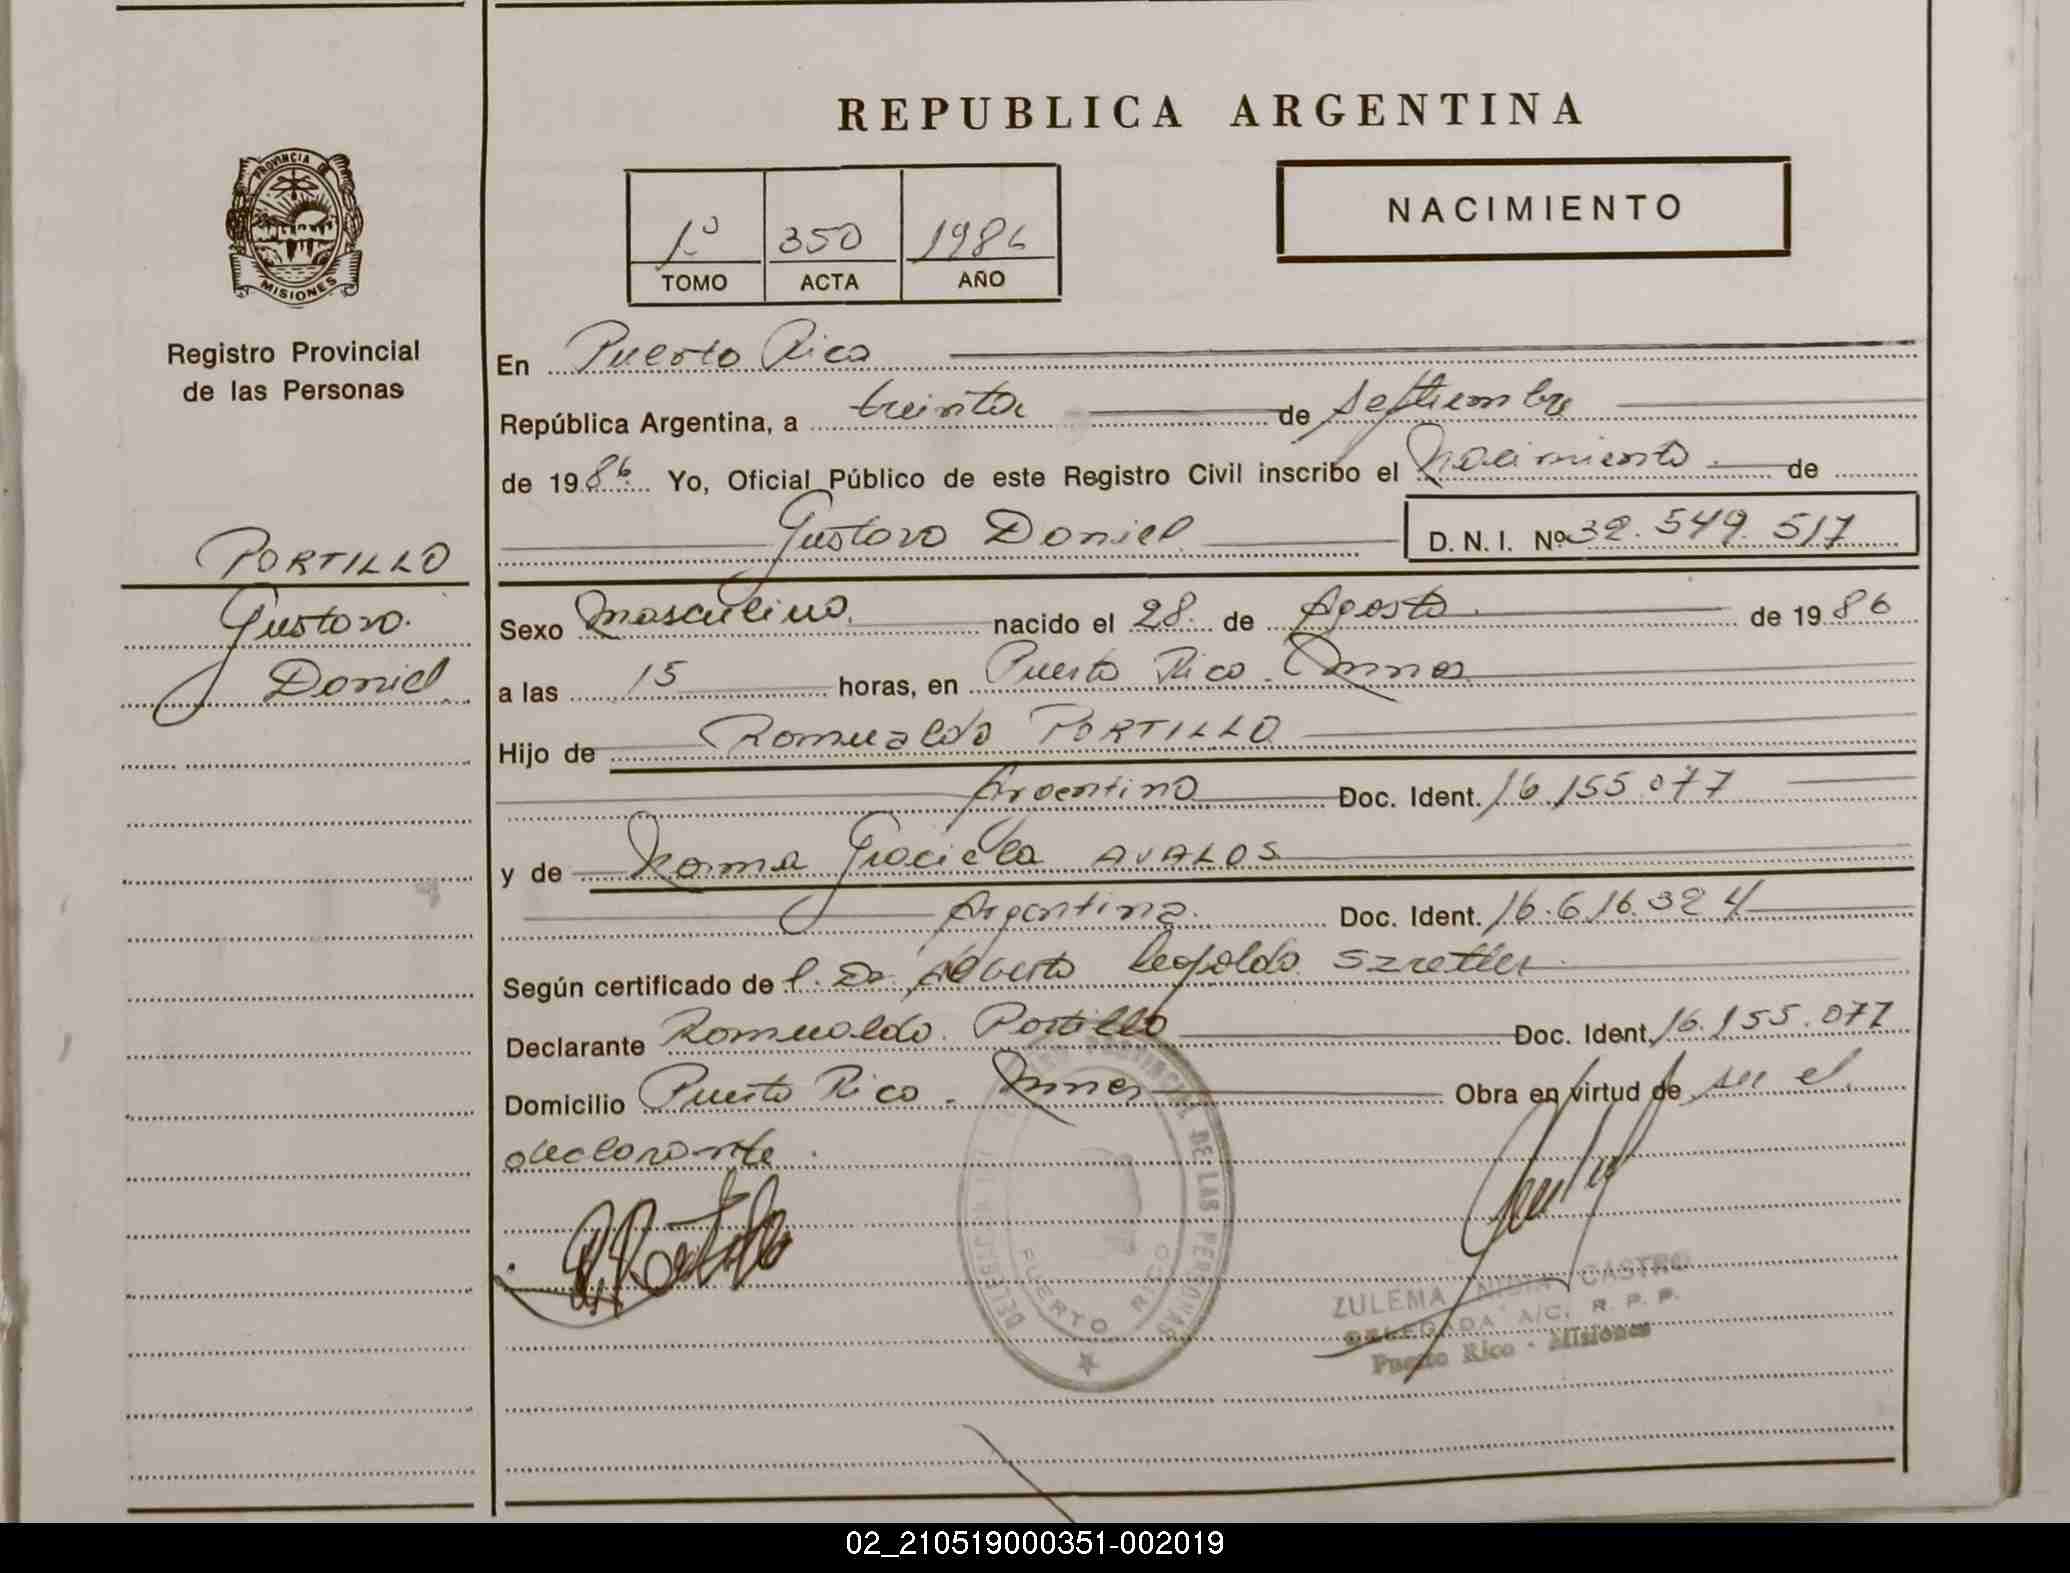 REPUBLICA ARGENTINA
PROVINCIA DE
MISIONES
Registro Provincial
de las Personas
1º 350 1986
TOMO ACTA AÑO
NACIMIENTO
En Puerto Rico
República Argentina, a treinta de septiembre
de 1986. Yo, Oficial Público de este Registro Civil inscribo el Nacimiento de
Gustavo Daniel D. N. I. Nº 32.549.517
PORTILLO
Gustavo
Daniel
Sexo Masculino nacido el 28 de Agosto de 1986
a las 15 horas, en Puerto Rico. Mnes
Hijo de Romualdo PORTILLO
Argentino Doc. Ident. 16.155.077
y de Norma Graciela AVALOS
Argentina. Doc. Ident. 16.616.324
Según certificado de Alberto Leopoldo
Declarante Romualdo Portillo Doc. Ident. 16.155.077
Domicilio Puerto Rico. Mnes Obra en virtud de ser el
declarante.
DE LAS PERSONAS
PUERTO RICO
ZULEMA CASTRO
DELEGADA A/C. R. P. P.
Puerto Rico - Misiones
02_210519000351-002019